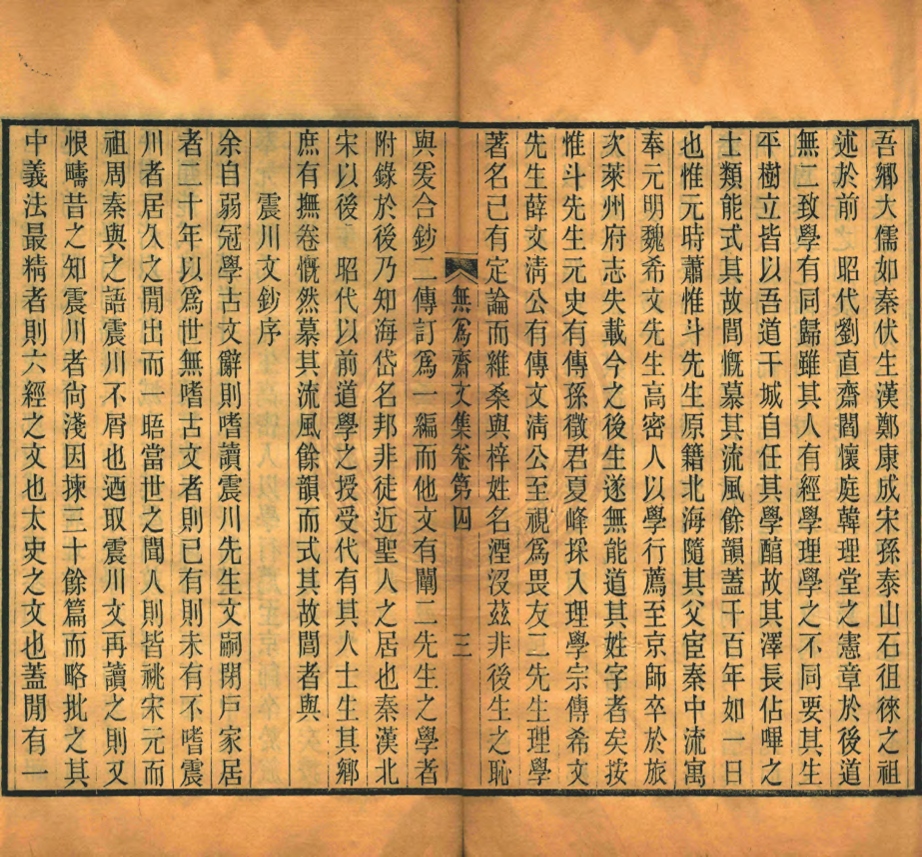 吾鄉大儒如秦伏生漢鄭康成宋孫泰山石徂徠之祖
述於前　昭代劉直齋閻懷庭韓理堂之憲章於後道
無二致學有同歸雖其人有經學理學之不同要其生
平樹立皆以吾道干城自任其學醇故其澤長佔嗶之
士類能式其故閭慨慕其流風餘韻蓋千百年如一日
也惟元時蕭惟斗先生原籍北海隨其父宦秦中流寓
奉元明魏希文先生高密人以學行薦至京師卒於旅
次萊州府志失載今之後生遂無能道其姓字者矣按
惟斗先生元史有傳孫徵君夏峰採入理學宗傳希文
先生薛文清公有傳文清公至視爲畏友二先生理學
著名已有定論而維桑與梓姓名湮沒茲非後生之恥
無爲齋文集卷第四　三
與爰合鈔二傳訂爲一編而他文有闡二先生之學者
附錄於後乃知海岱名邦非徒近聖人之居也秦漢北
宋以後　昭代以前道學之授受代有其人士生其鄉
庶有撫卷慨然慕其流風餘韻而式其故閭者與
震川文鈔序
余自弱冠學古文辭則嗜讀震川先生文嗣閉戶家居
者二十年以爲世無嗜古文者則已有則未有不嗜震
川者居久之閒出而一晤當世之聞人則皆祧宋元而
祖周秦與之語震川不屑也迺取震川文再讀之則又
恨疇昔之知震川者尙淺因揀三十餘篇而略批之其
中義法最精者則六經之文也太史之文也蓋閒有一